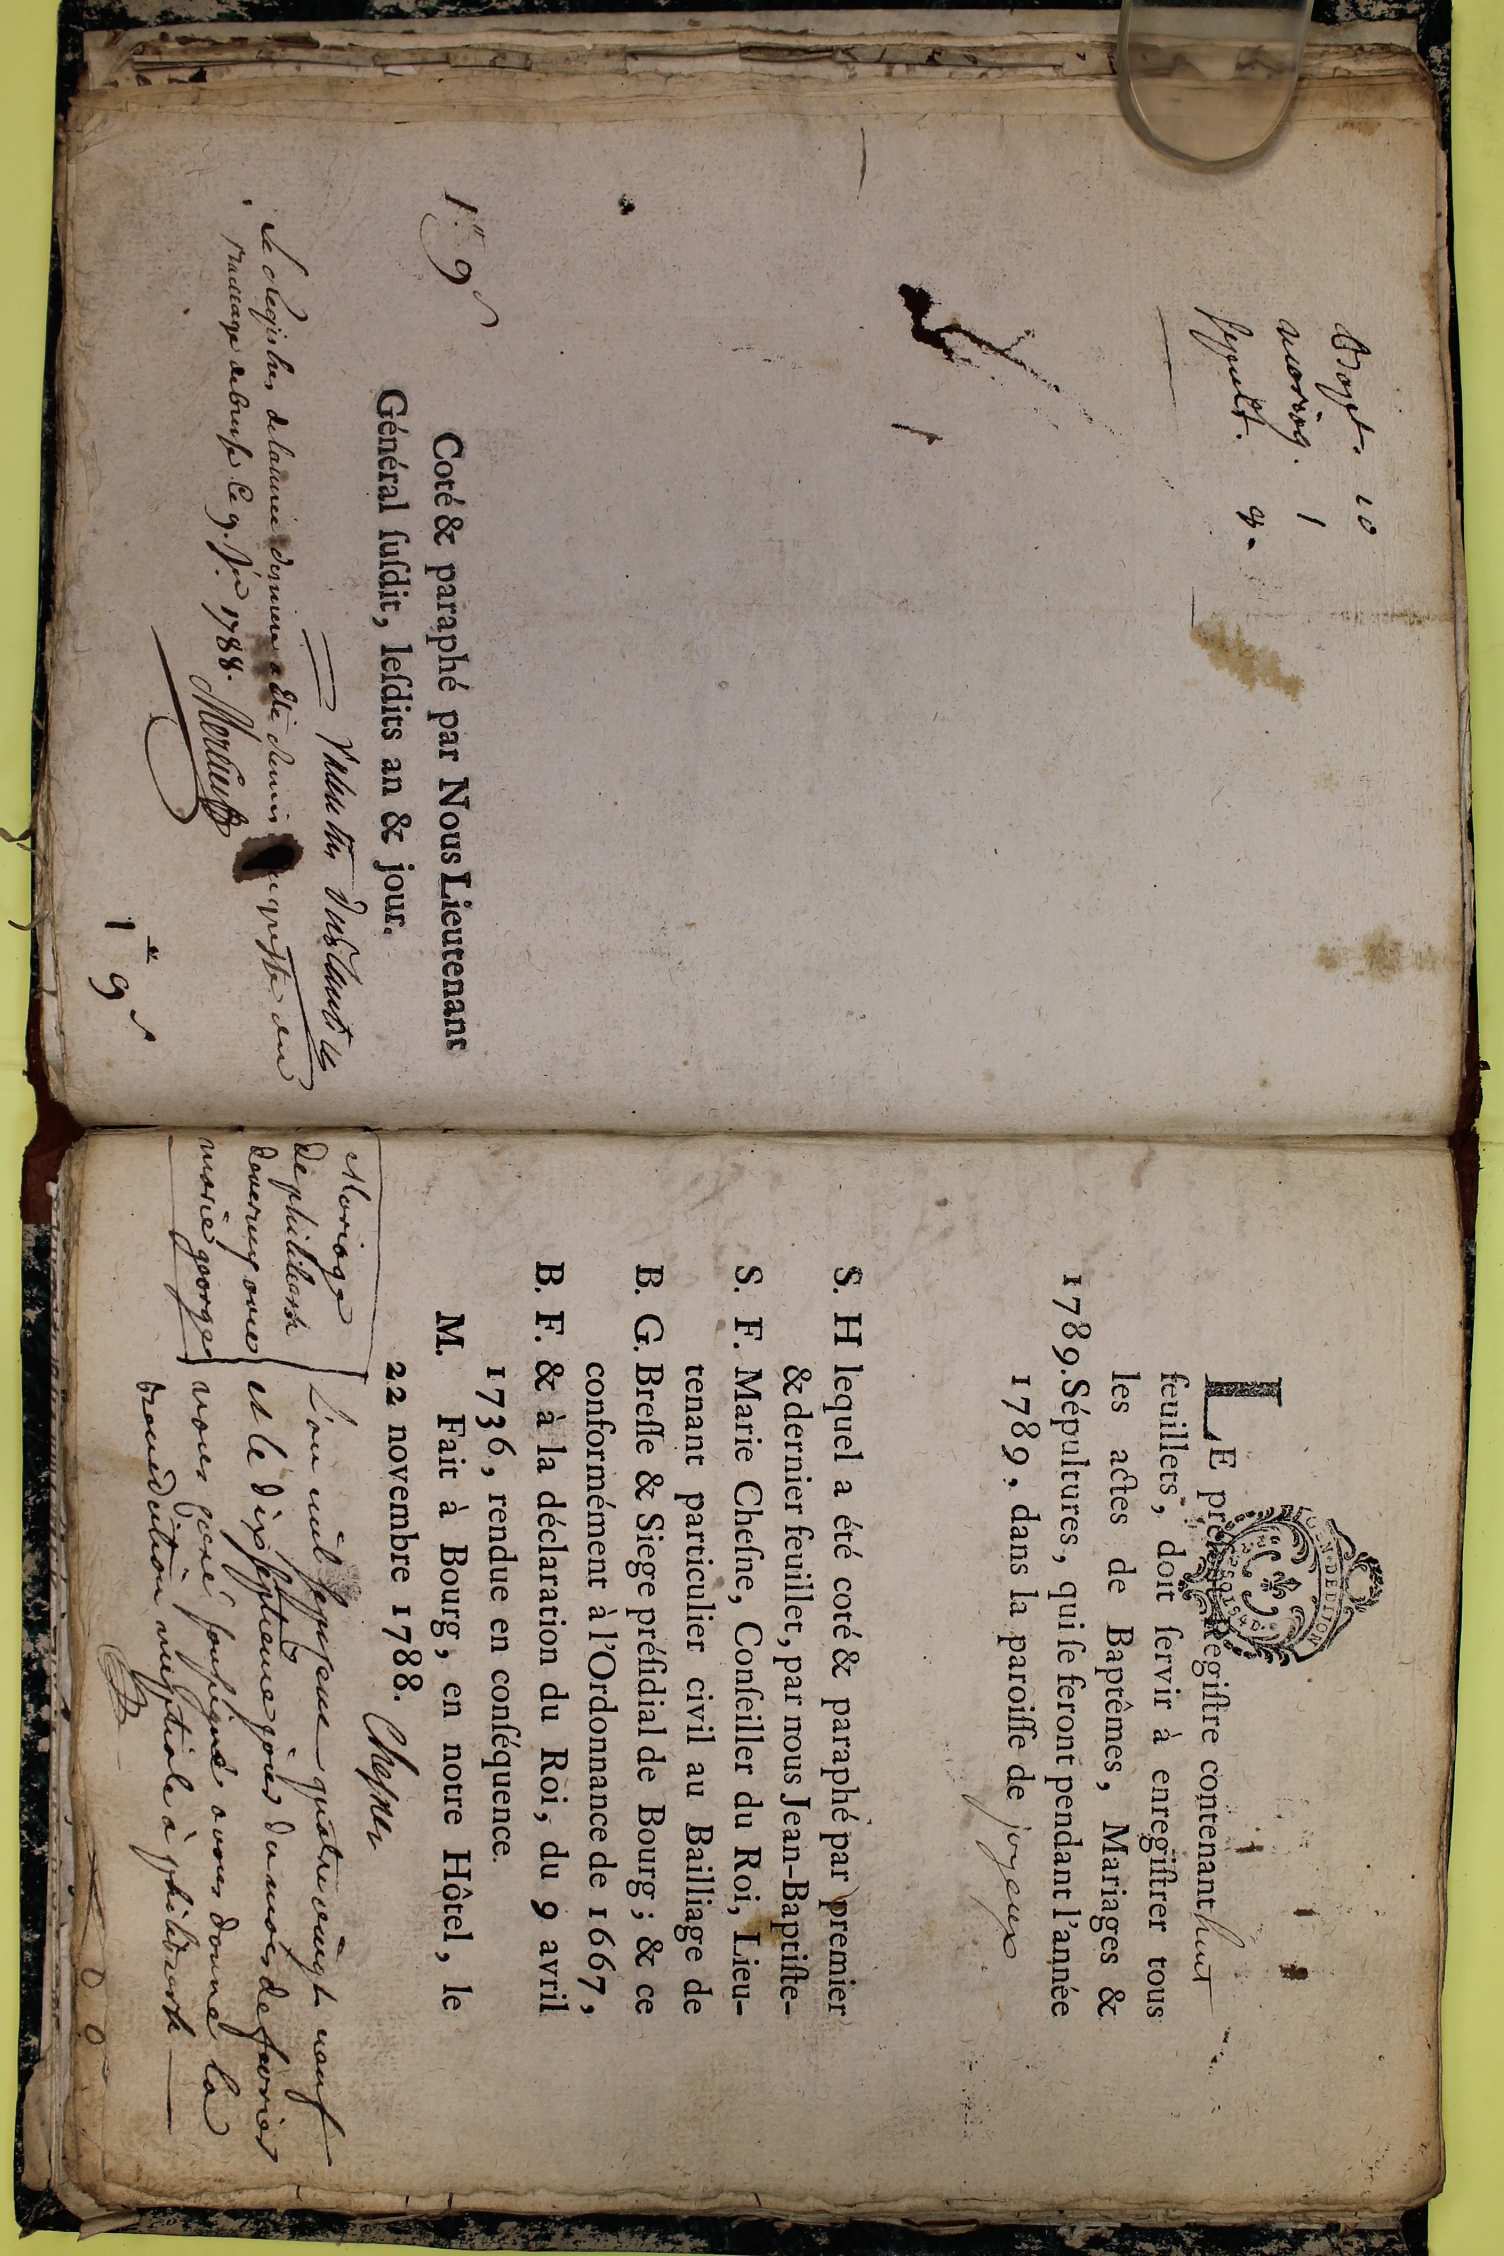 Bapt. 10
mariag. 1
sepult. 8.
1.er 9
Coté & paraphé par Nous Lieutenant
Général ſuſdit, leſdits an & jour.
Le Registre de lannée derniere a Eté remis au greffe du
Baillage de bresse le 9. 1788.
1er 9
GEN. DE DIJON
LE préſent Regiſtre contenant huit
feuillets, doit ſervir à enregiſtrer tous
les actes de Baptêmes, Mariages &
1789. Sépultures, qui ſe feront pendant l'année
1789, dans la paroiſſe de joyeux
S. H lequel a été coté & paraphé par premier
& dernier feuillet, par nous Jean-Baptiſte-
S. F. Marie Cheſne, Conſeiller du Roi, Lieu-
tenant particulier civil au Bailliage de
B. G. Breſſe & Siege préſidial de Bourg ; & ce
conformément à l'Ordonnance de 1667,
B. F. & à la déclaration du Roi, du 9 avril
1736, rendue en conſéquence.
M. Fait à Bourg, en notre Hôtel, le
22 novembre 1788. Chesne
Mariage
de philibert
avec
marie george
L'an mil sept cent quatre vingt neuf
et le dix septieme jour du mois de fevrier
nous curé soussigné avons donné la
benediction nuptiale à philibert